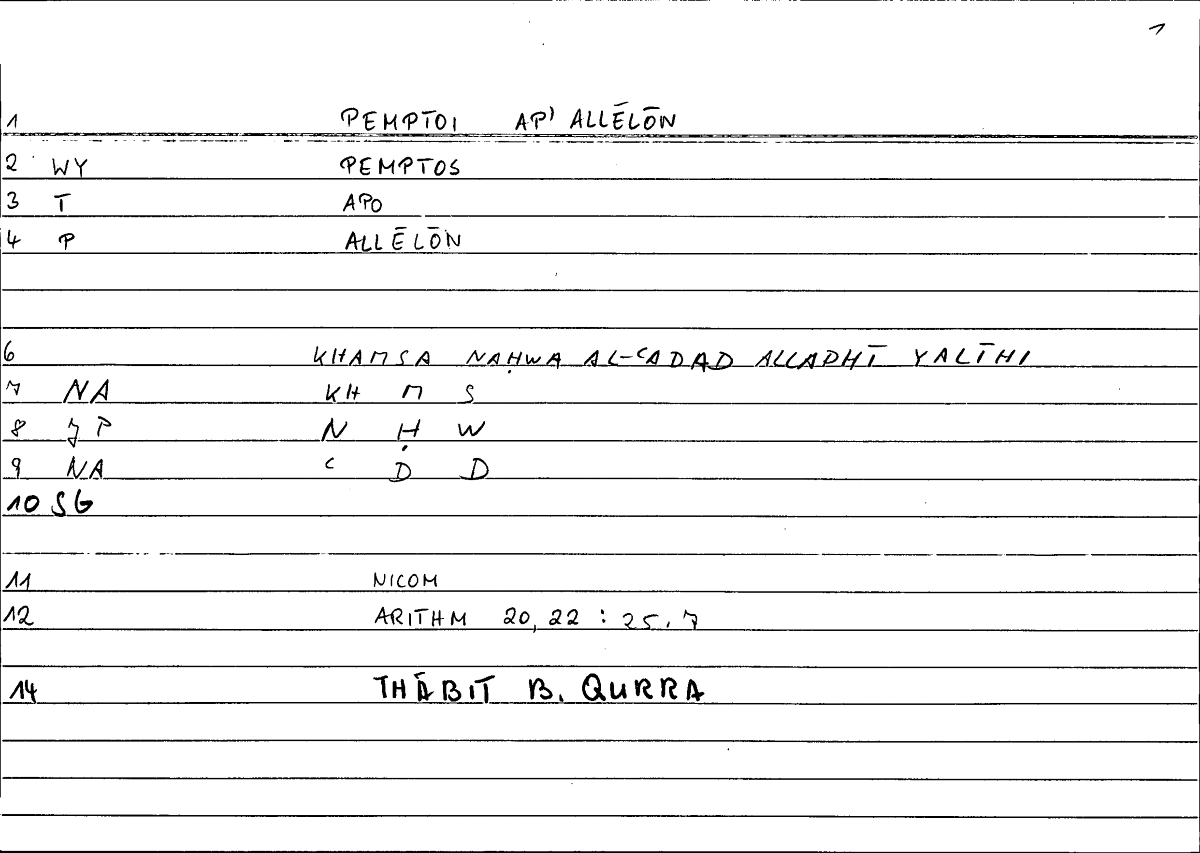 1
1 PEMPTOI AP' ALLĒLŌN
2 WY PEMPTOS
3 T APO
4 P ALLĒLŌN
6 KHAMSA NAḤWA AL-ʿADAD ALLADHĪ YALĪHI
7 NA KH M S
8 JP N Ḥ W
9 NA ʿ D D
10 SG
11 NICOM
12 ARITHM 20,22 : 25,7
14 THĀBIT B. QURRA